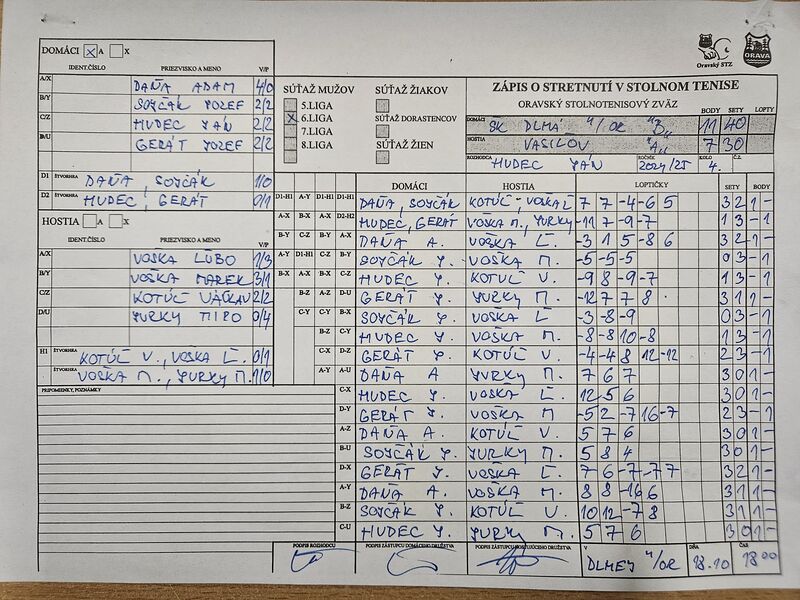 DOMÁCI X A X
IDENT.ČÍSLO PRIEZVISKO A MENO V/P
A/X DAŇA ADAM 4/0
B/Y SOJČÁK JOZEF 2/2
C/Z HUDEC JÁN 2/2
B/U GERÁT JOZEF 2/2
D1 ŠTVORHRA DAŇA, SOJČÁK 1/0
D2 HUDEC, GERÁT 0/1
HOSTIA A X
IDENT.ČÍSLO PRIEZVISKO A MENO V/P
A/X VOŠKA ĽUBO 1/3
B/Y VOŠKA MAREK 3/1
C/Z KOTÚĽ VÁCLAV 2/2
D/U JURKY MIRO 0/4
H1 ŠTVORHRA KOTÚĽ V., VOŠKA Ľ. 0/1
ŠTVORHRA VOŠKA M., JURKY M. 1/0
PRIPOMIENKY, POZNÁMKY
SÚŤAŽ MUŽOV SÚŤAŽ ŽIAKOV
5.LIGA
X 6.LIGA SÚŤAŽ DORASTENCOV
7.LIGA
8.LIGA SÚŤAŽ ŽIEN
Oravský STZ
ORAVA
ZÁPIS O STRETNUTÍ V STOLNOM TENISE
ORAVSKÝ STOLNOTENISOVÝ ZVÄZ
BODY SETY LOPTY
DOMÁCI SK DLHÁ N/OR "B" 11 40
HOSTIA VASIĽOV "A" 7 30
ROZHODCA HUDEC JÁN ROČNÍK 2024/25 KOLO 4. Č.Z.
DOMÁCI HOSTIA LOPTIČKY SETY BODY
D1-H1 A-Y D1-H1 D1-H1 DAŇA, SOJČÁK KOTÚĽ, VOŠKA Ľ 7 7 -4 -6 5 3 2 1 -
A-X B-X A-X D2-H2 HUDEC, GERÁT VOŠKA M., JURKY -11 7 -9 -7 1 3 - 1
B-Y C-Z B-Y A-X DAŇA A. VOŠKA Ľ. -3 1 5 -8 6 3 2 1 -
A-Y D1-H1 C-Z B-Y SOJČÁK J. VOŠKA M. -5 -5 -5 0 3 - 1
B-X A-X B-X C-Z HUDEC J. KOTÚĽ V. -9 8 -9 -7 1 3 - 1
B-Z A-Z D-U GERÁT J. JURKY M. -12 7 7 8 3 1 1 -
C-Y C-Y B-X SOJČÁK J. VOŠKA Ľ. -3 -8 -9 0 3 - 1
B-Z C-Y HUDEC J. VOŠKA M. -8 -8 10 -8 1 3 - 1
C-X D-Z GERÁT J. KOTÚĽ V. -4 -4 8 12 -12 2 3 - 1
A-Y A-U DAŇA A JURKY M. 7 6 7 3 0 1 -
C-X HUDEC J. VOŠKA Ľ. 12 5 6 3 0 1 -
D-Y GERÁT J. VOŠKA M -5 2 -7 16 -7 2 3 - 1
A-Z DAŇA A. KOTÚĽ V. 5 7 6 3 0 1 -
B-U SOJČÁK J. JURKY M. 5 8 4 3 0 1 -
D-X GERÁT J. VOŠKA Ľ. 7 6 -7 -7 7 3 2 1 -
A-Y DAŇA A. VOŠKA M. 8 8 -16 6 3 1 1 -
B-Z SOJČÁK J. KOTÚĽ V. 10 12 -7 8 3 1 1 -
C-U HUDEC J. JURKY M. 5 7 6 3 0 1 -
PODPIS ROZHODCU PODPIS ZÁSTUPCU DOMÁCEHO DRUŽSTVA PODPIS ZÁSTUPCU HOSŤUJÚCEHO DRUŽSTVA V DLHEJ N/OR DŇA 18.10 ČAS 18 00